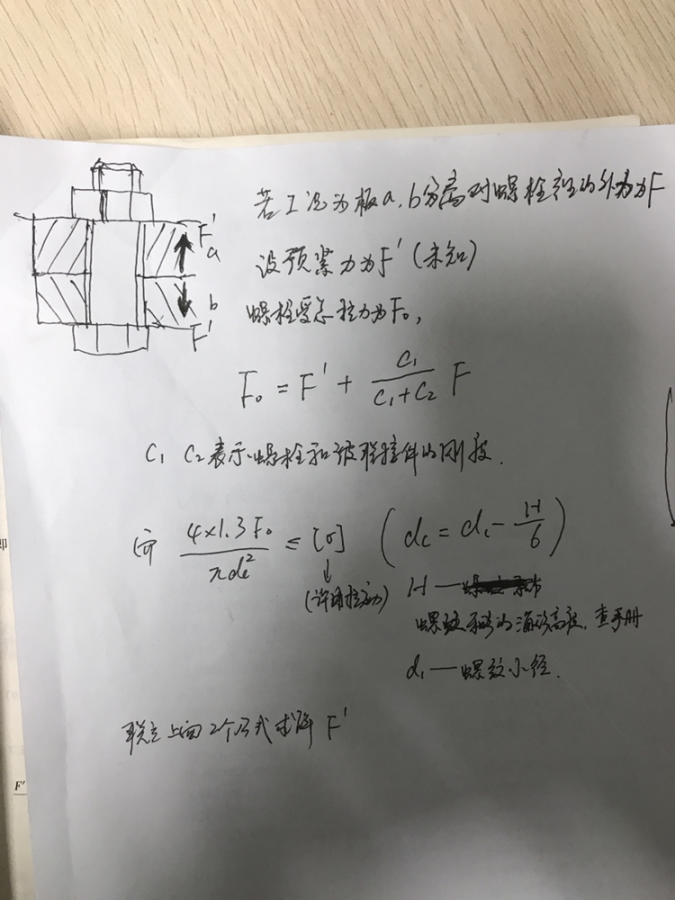 若工况为板a、b分离对螺栓产生的外力为F
设预紧力为F'(未知)
螺栓受总拉力为F₀,
F'
a
b
F'
F₀ = F' + \frac{C₁}{C₁+C₂} F
C₁ C₂表示螺栓和被联接件的刚度.
\frac{4×1.3F₀}{πdc²} ≤ [σ] (dc = d₁ - \frac{H}{6})
(许用拉应力)
H —
螺纹 的 高度, 查手册
d₁ — 螺纹小径.
联立上面2个公式求解 F'
即
F'